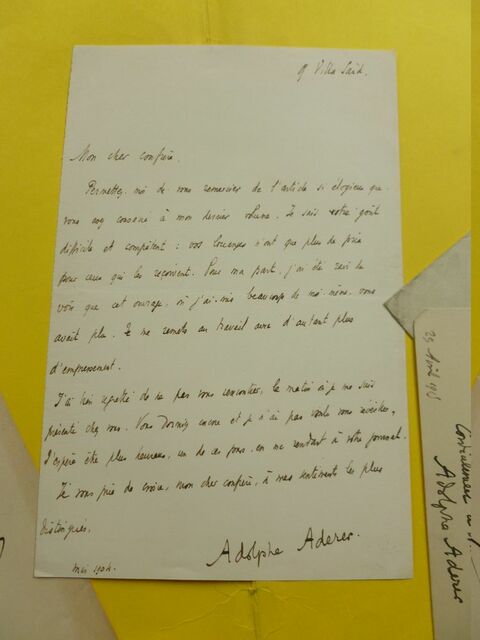 9 Villa Saïd.
Mon cher confrère,
Permettez-moi de vous remercier de l'article si élogieux que
vous avez consacré à mon dernier volume. Je sais votre goût
difficile et compétent : vos louanges n'ont que plus de prix
pour ceux qui les reçoivent. Pour ma part, j'ai été ravi de
voir que cet ouvrage, où j'ai mis beaucoup de moi-même, vous
avait plu. Je me remets au travail avec d'autant plus
d'empressement.
J'ai bien regretté de ne pas vous rencontrer, le matin où je me suis
présenté chez vous. Vous dormiez encore et je n'ai pas voulu vous réveiller.
J'espère être plus heureux, un de ces jours, en me rendant à votre journal.
Je vous prie de croire, mon cher confrère, à mes sentiments les plus
distingués.
Adolphe Aderer.
mai 1904.
Adolphe Aderer